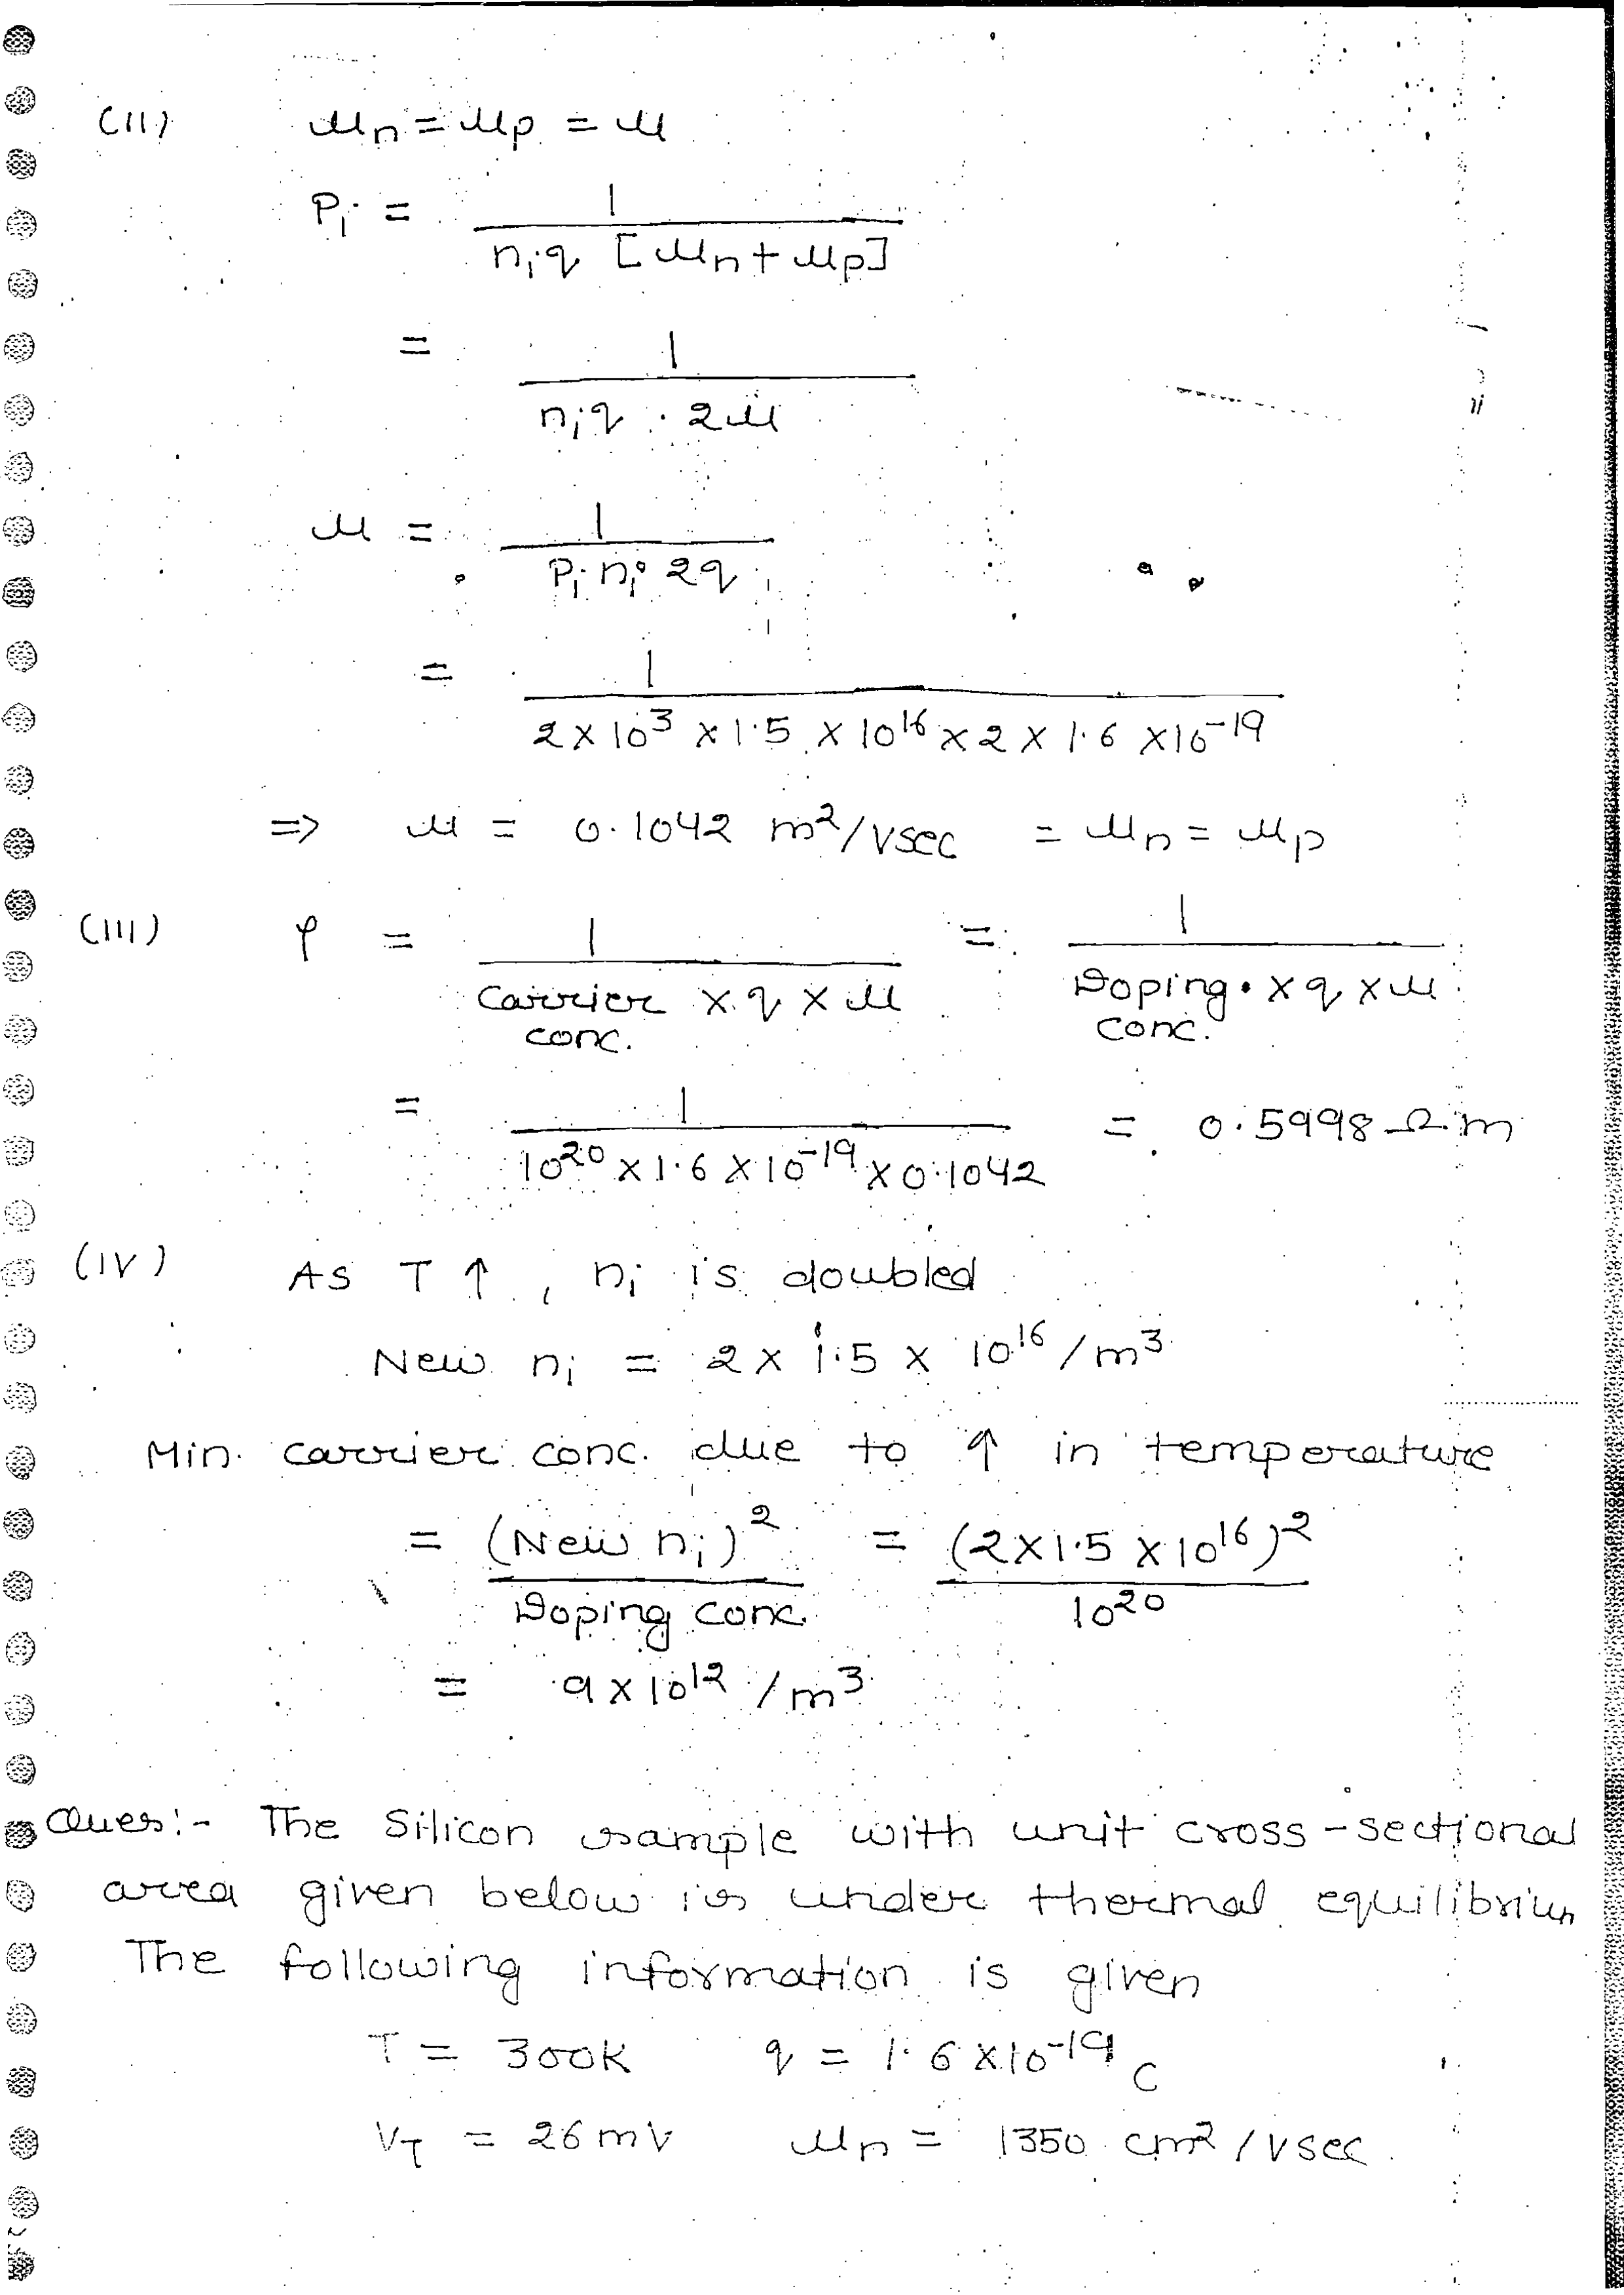 (II) μn = μp = μ
ρi = 1 / niq [μn + μp]
= 1 / niq · 2μ
μ = 1 / ρi ni 2q
= 1 / 2 × 10³ × 1.5 × 10¹⁶ × 2 × 1.6 × 10⁻¹⁹
⇒ μ = 0.1042 m²/Vsec = μn = μp
(III) ρ = 1 / Carrier conc. × q × μ = 1 / Doping conc. × q × μ
= 1 / 10²⁰ × 1.6 × 10⁻¹⁹ × 0.1042 = 0.5998 Ω m
(IV) As T ↑, ni is doubled
New ni = 2 × 1.5 × 10¹⁶ / m³
Min. carrier conc. due to ↑ in temperature
= (New ni)² / Doping conc. = (2 × 1.5 × 10¹⁶)² / 10²⁰
= 9 × 10¹² / m³
Ques:- The Silicon sample with unit cross-sectional
area given below is under thermal equilibrium
The following information is given
T = 300K q = 1.6 × 10⁻¹⁹ C
VT = 26 mV μn = 1350 cm² / Vsec.